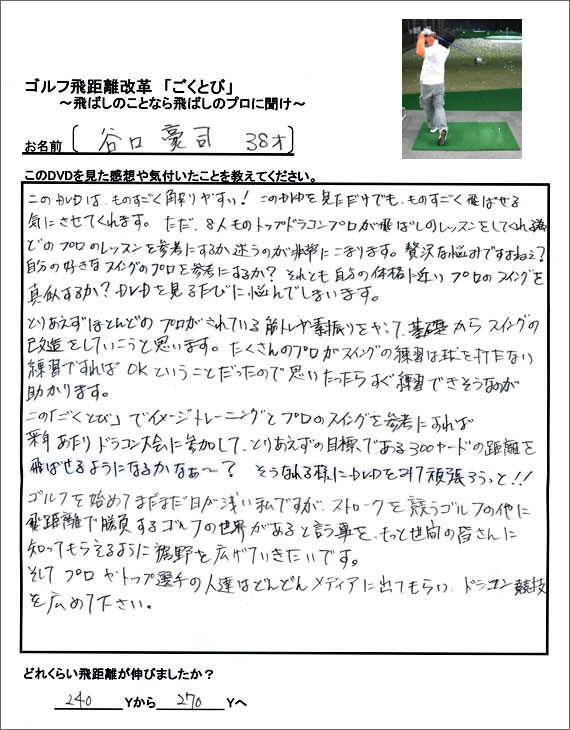 ゴルフ飛距離改革 「ごくとび」
～飛ばしのことなら飛ばしのプロに聞け～
お名前 谷口 豪司 38才
このDVDを見た感想や気付いたことを教えてください。
このDVDは、ものすごく解りやすい! このDVDを見ただけでも、ものすごく飛ばせる
気にさせてくれます。ただ、8人ものトップドラコンプロが飛ばしのレッスンをしてくれる為
どのプロのレッスンを参考にするか迷うのが非常にこまります。贅沢な悩みですよねぇ?
自分の好きなスイングのプロを参考にするか? それとも自分の体格に近いプロのスイングを
真似するか? DVDを見るたびに悩んでしまいます。
とりあえずほとんどのプロがされている筋トレや素振りをやって、基礎からスイングの
改造をしていこうと思います。たくさんのプロがスイングの練習は球を打たない
練習ですればOKということだったので思いたったらすぐ練習できそうなのが
助かります。
この「ごくとび」でイメージトレーニングとプロのスイングを参考にすれば
来年あたりドラコン大会に参加して、とりあえずの目標である300ヤードの距離を
飛ばせるようになるかなぁ～? そうなれる様にDVDを見て頑張ろうっと!!
ゴルフを始めてまだまだ日が浅い私ですが、ストロークを競うゴルフの他に
飛距離で勝負するゴルフの世界があると言う事を、もっと世間の皆さんに
知ってもらえるように裾野を広げていきたいです。
そしてプロやトップ選手の人達はどんどんメディアに出てもらい、ドラコン競技
を広めて下さい。
どれくらい飛距離が伸びましたか?
240 Yから 270 Yへ